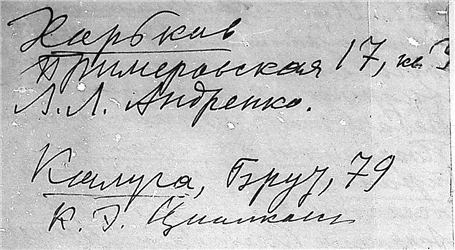 Харьков
Бримеровская 17, кв 3
Л. Л. Андренко.
Калуга, Брут, 79
К. Э. Циолков